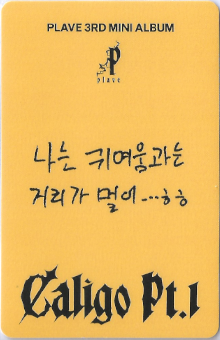 PLAVE 3RD MINI ALBUM
P
plave
나는 귀여움과는
거리가 멀어...ㅎㅎ
Caligo Pt.1